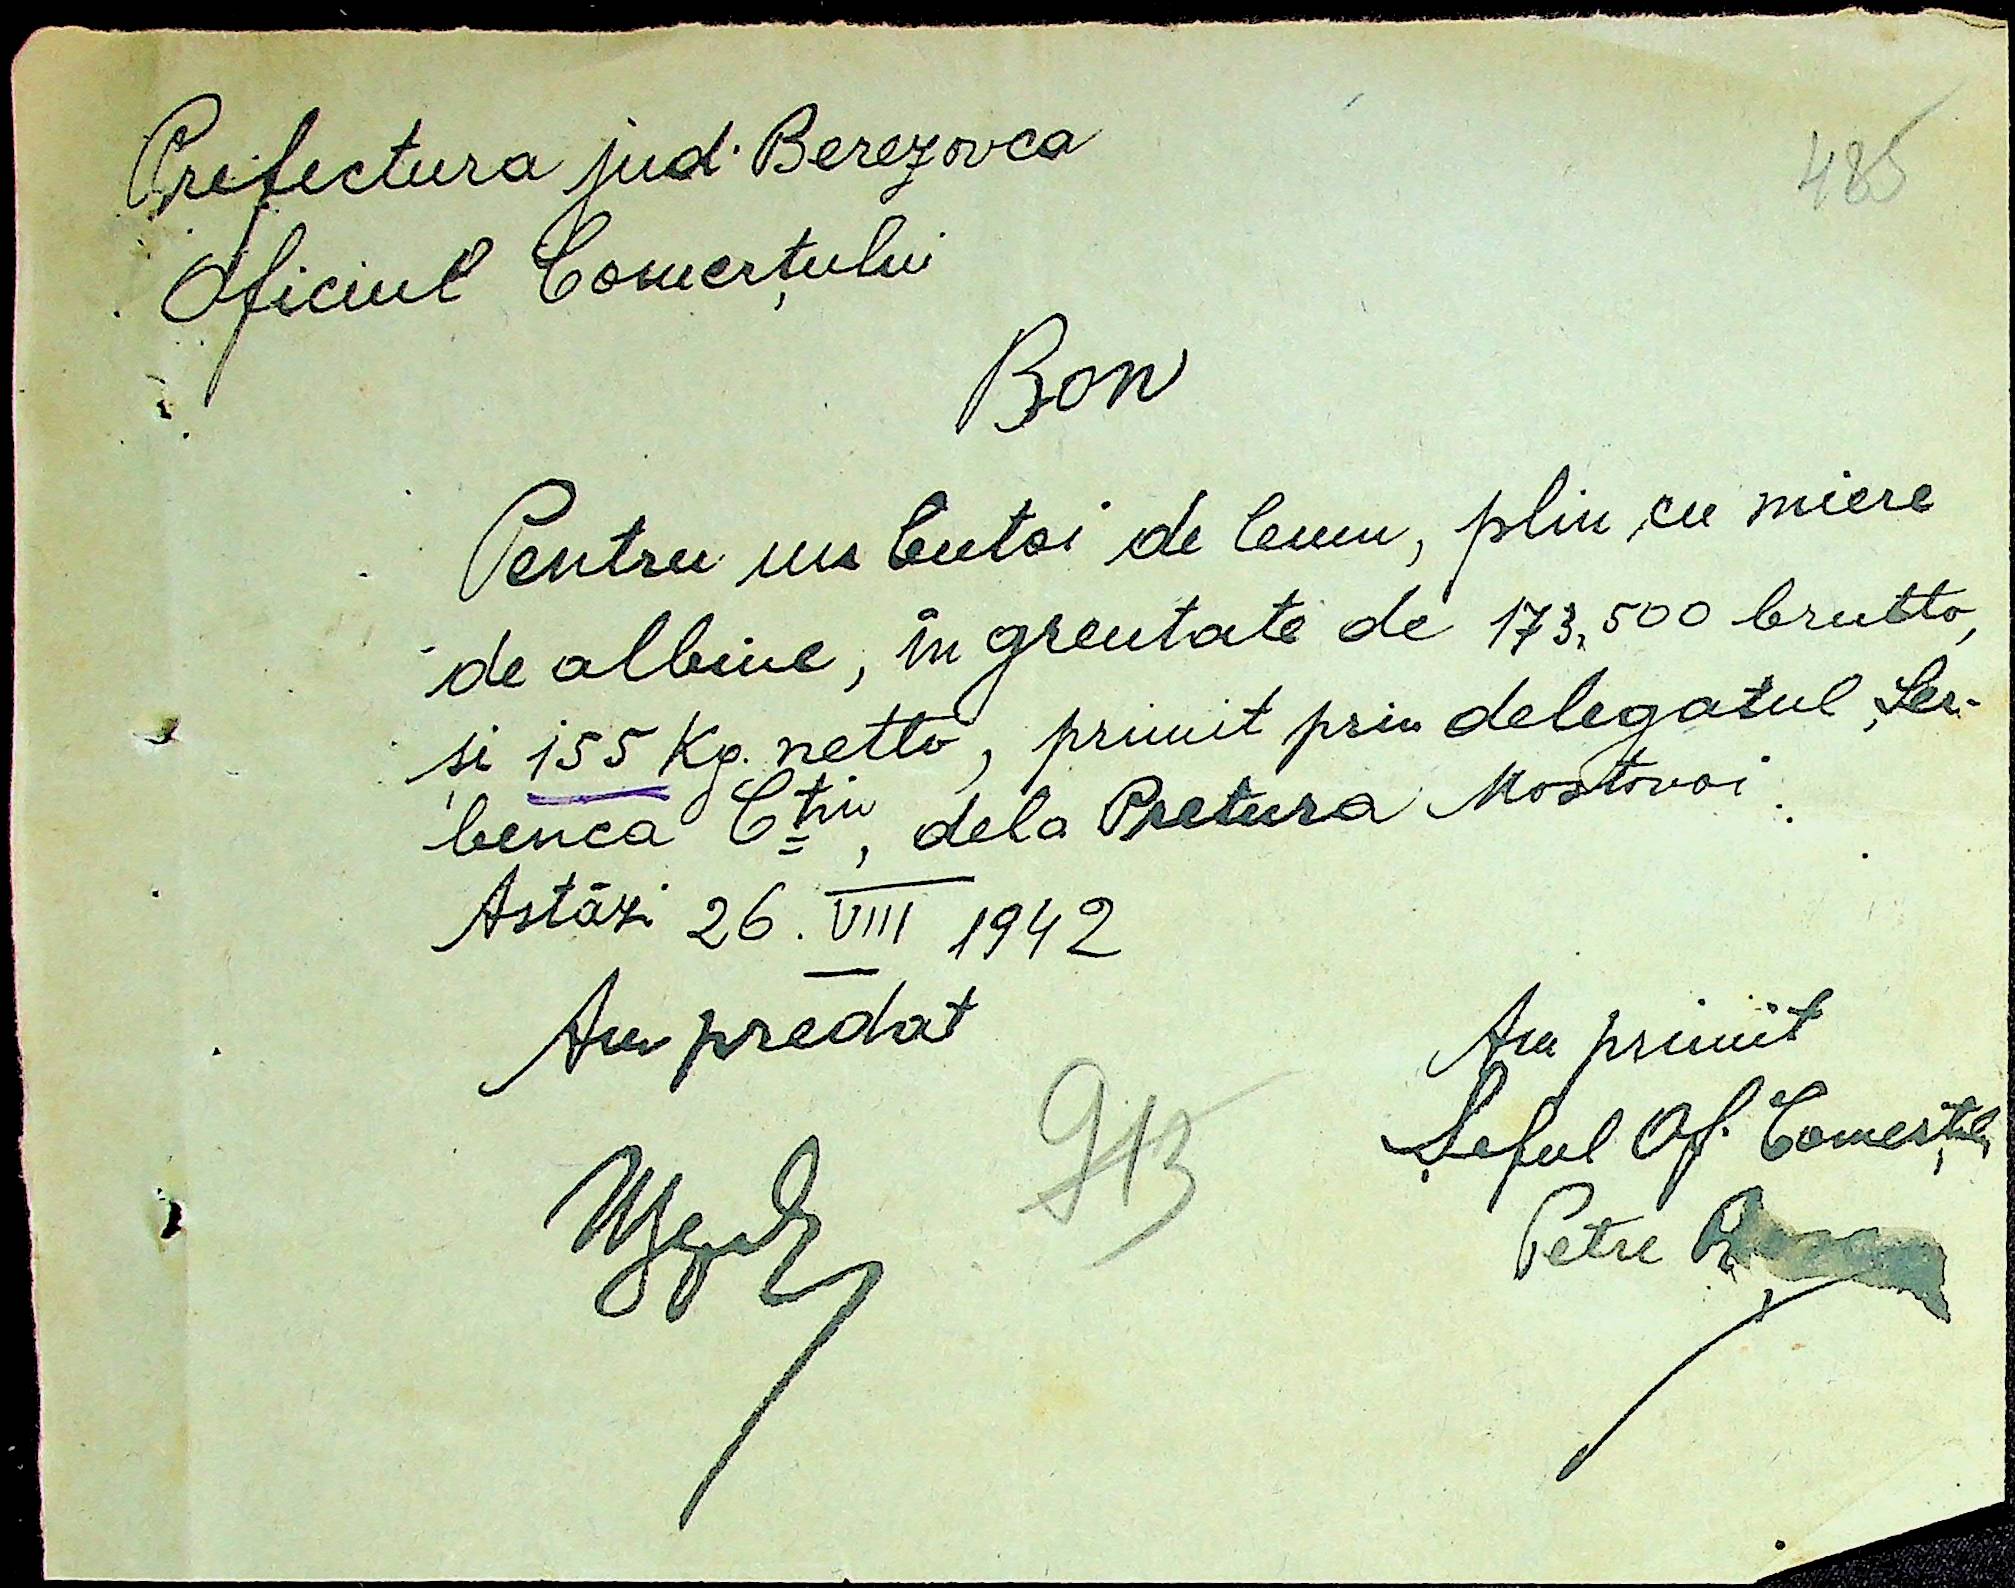 Prefectura jud. Berezovca
485
Oficiul Comerțului
Bon
Pentru un butoi de lemn, plin cu miere
de albine, în greutate de 173,500 brutto,
și 155 Kg. netto, primit prin delegatul Șer-
benca C-tin, dela Pretura Mostovoi.
Astăzi 26. VIII 1942
Am predat
Am primit
Șeful Of. Comerțului
913
Petre